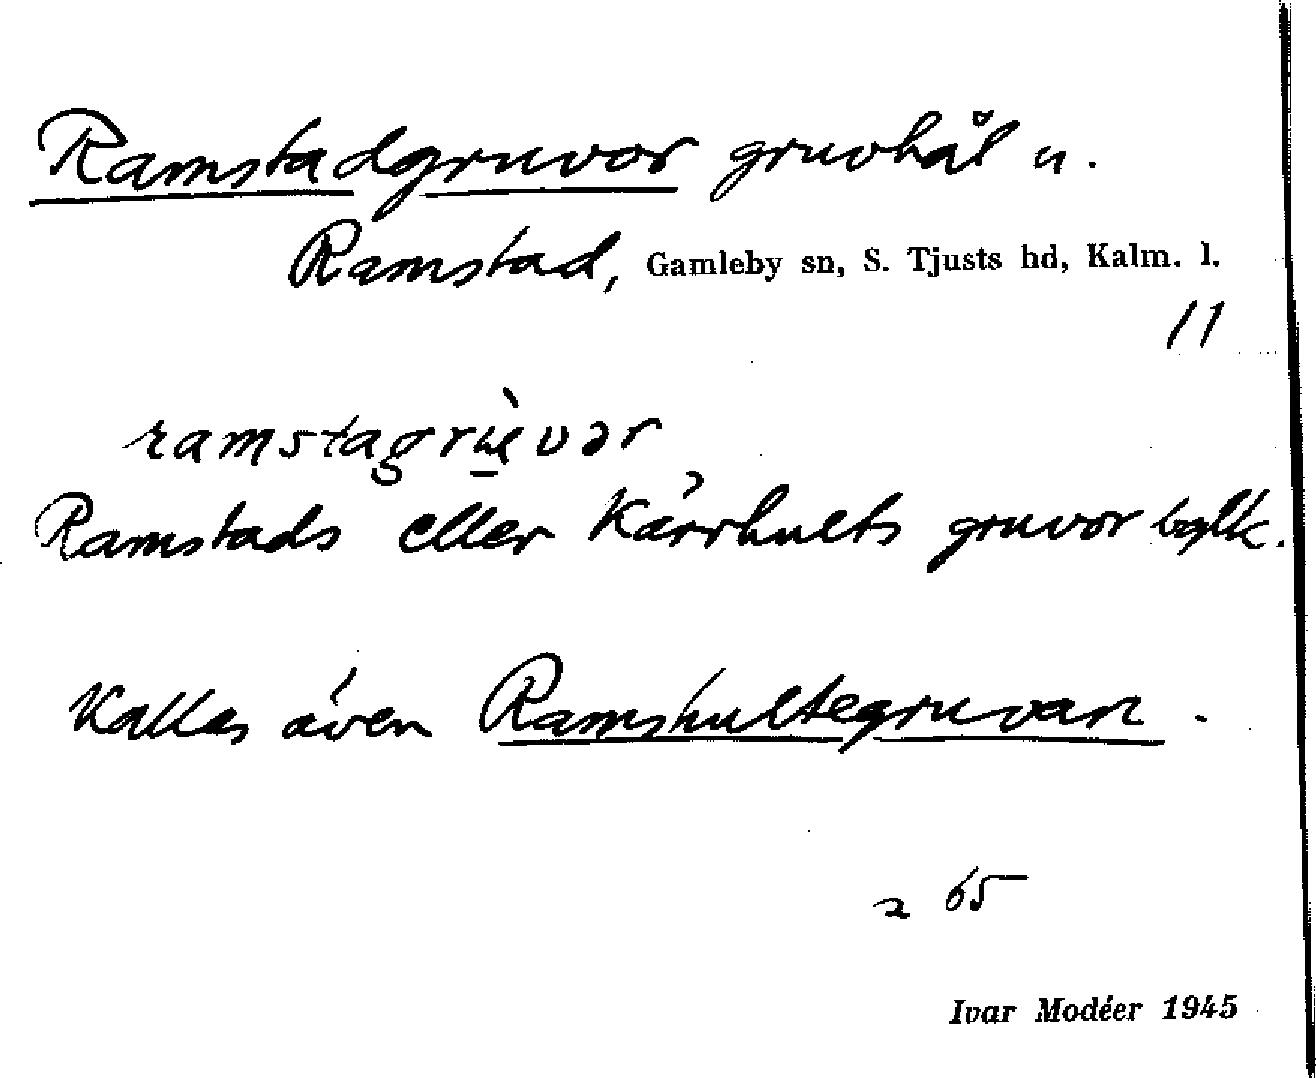 Ramstadgruvor gruvhål u.
Ramstad, Gamleby sn, S. Tjusts hd, Kalm. l.
11
ramstagrùvər
Ramstads eller Kärrhults gruvor
Kallas även Ramshultegruvan.
a 65
Ivar Modéer 1945